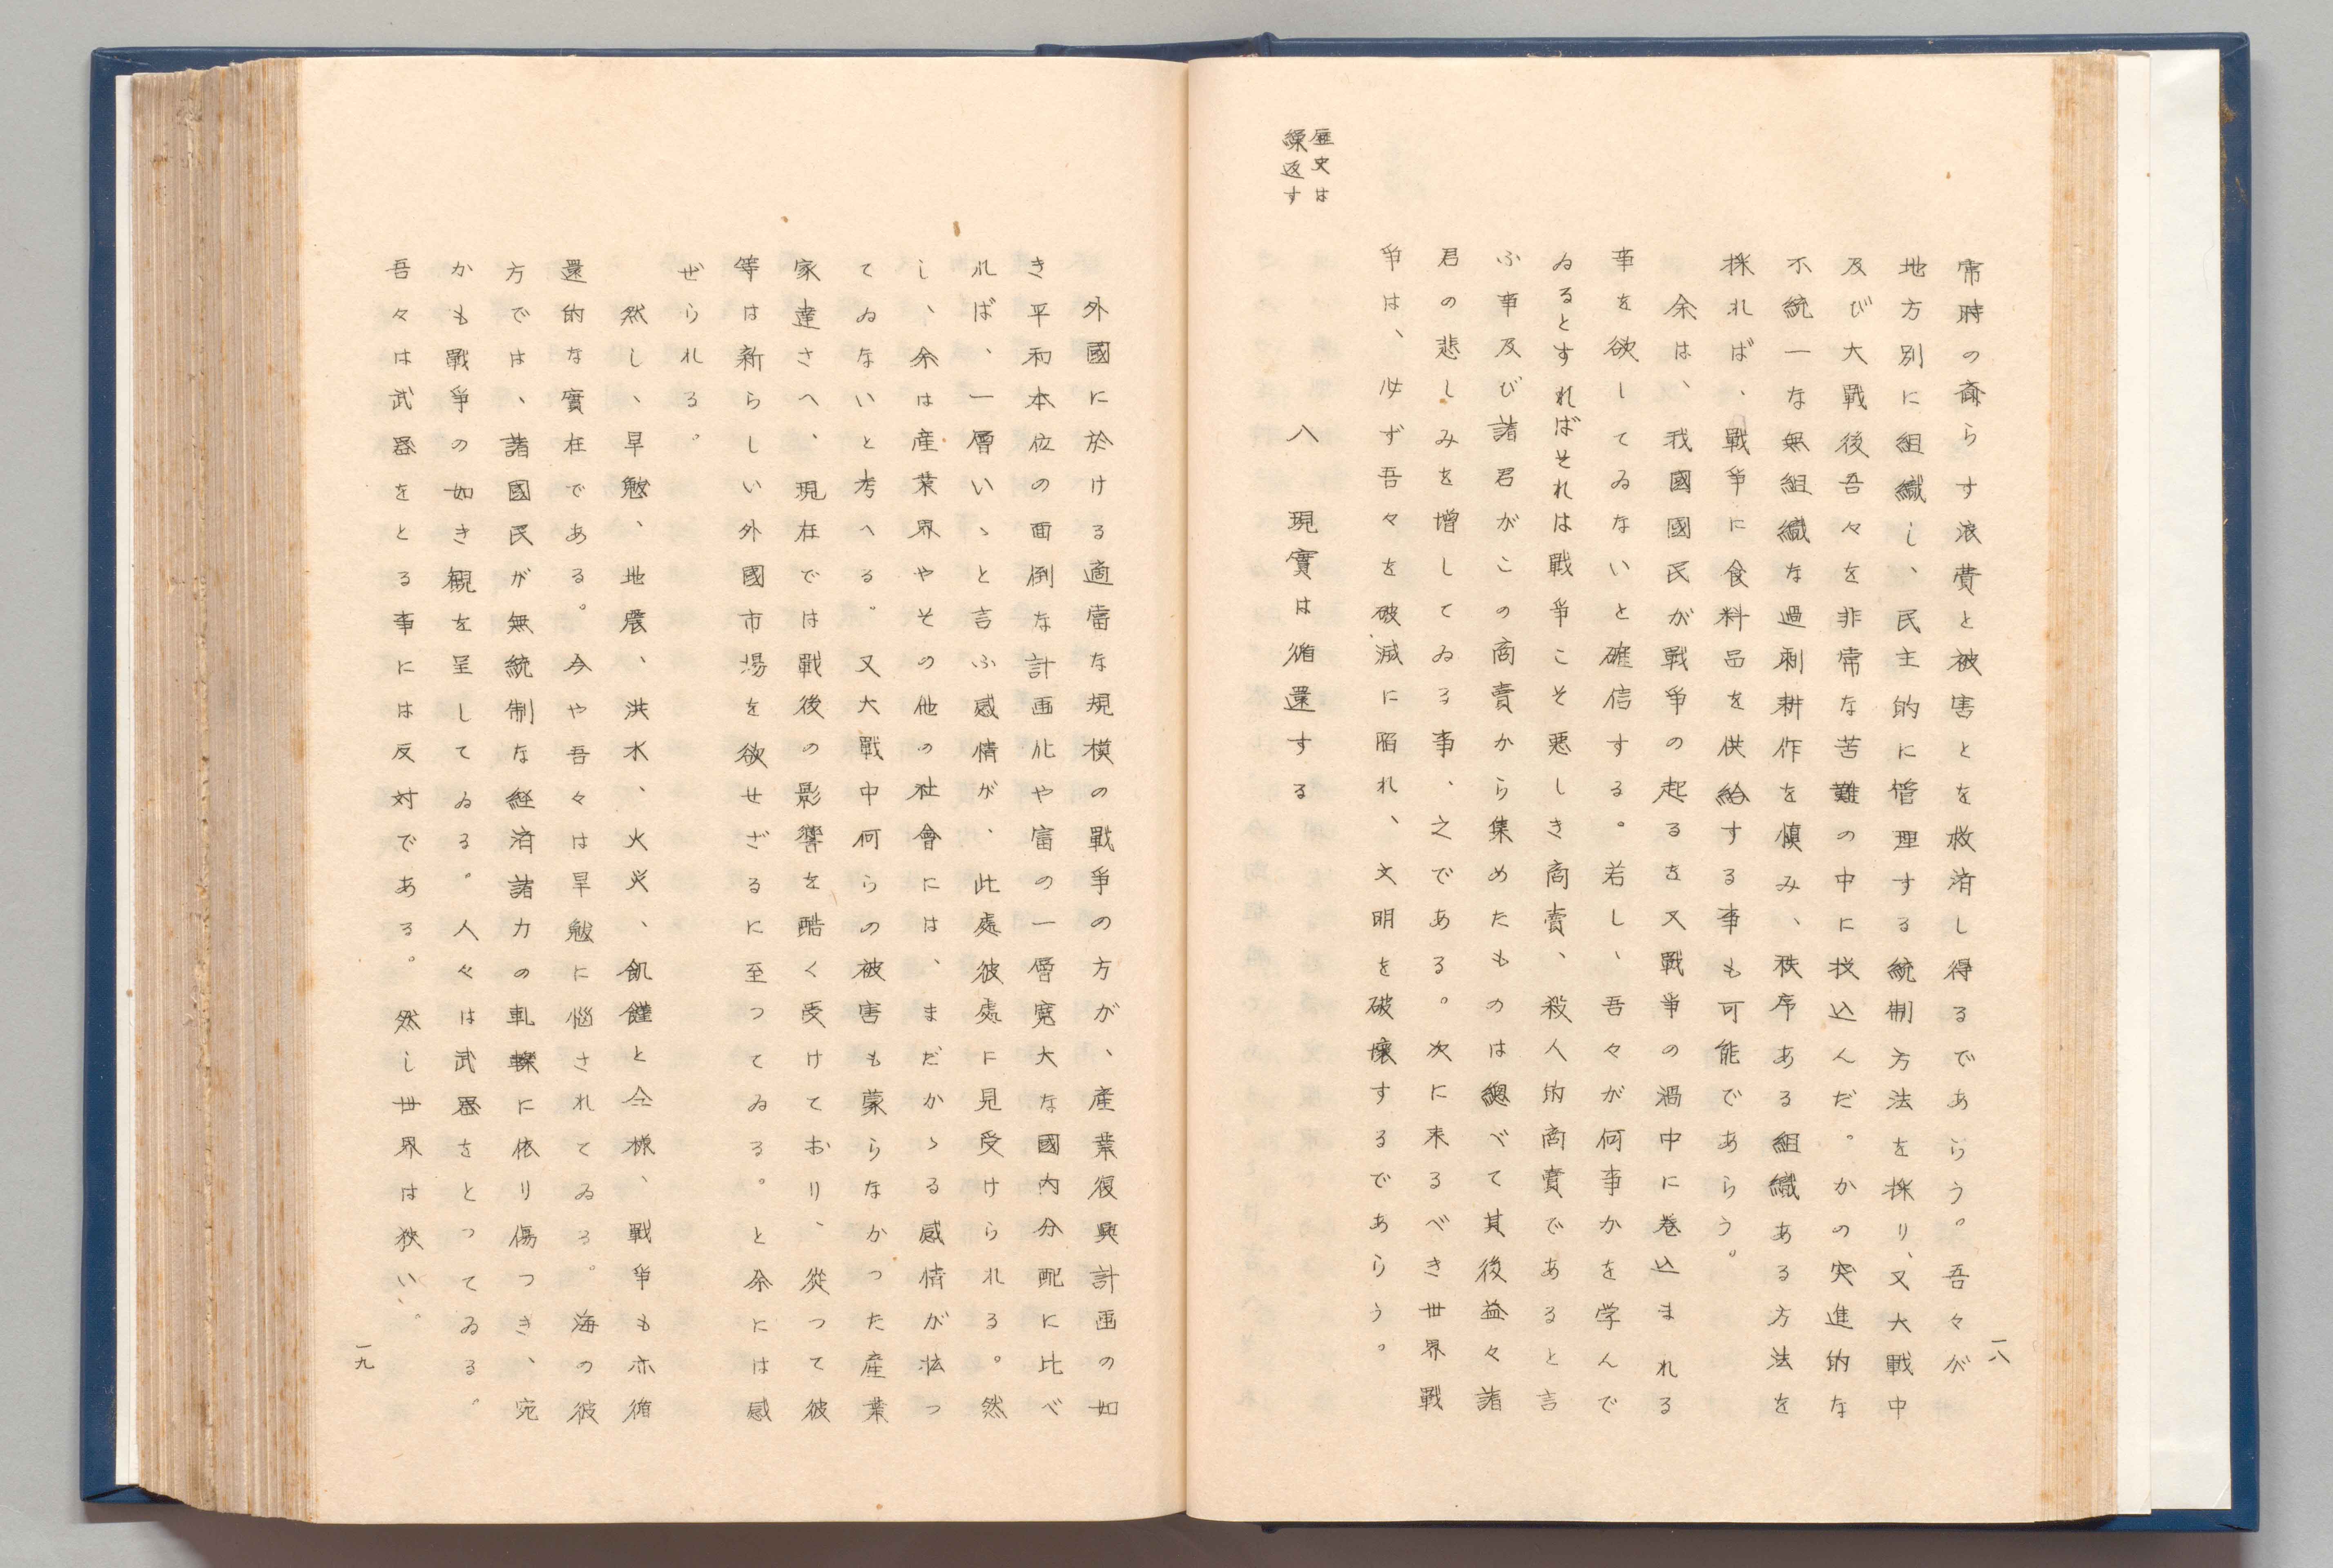 常時の齎らす浪費と被害とを救済し得るであらう。吾々が
地方別に組織し、民主的に管理する統制方法を採り、又大戰中
及び大戰後吾々を非常な苦難の中に投込んだ。かの突進的な
不統一な無組織な過剰耕作を慎み、秩序ある組織ある方法を
採れば、戰争に食料品を供給する事も可能であらう。
余は、我國國民が戰爭の起るを又戰爭の渦中に巻込まれる
事を欲してゐないと確信する。若し、吾々が何事かを学んで
ゐるとすればそれは戰爭こそ悪しき商賣、殺人的商賣であると言
ふ事及び諸君がこの商賣から集めたものは總べて其後益々諸
君の悲しみを増してゐる事、之である。次に来るべき世界戰
爭は、必ず吾々を破滅に陥れ、文明を破壊するであらう。
歴史は
繰返す
八 現實は循還する
一八
外國に於ける適當な規模の戰爭の方が、產業復興計画の如
き平和本位の面倒な計画化や富の一層寛大な國内分配に比べ
れば、一層いゝと言ふ感情が、此處彼處に見受けられる。然
し、余は産業界やその他の社會には、まだかゝる感情が拡つ
てゐないと考へる。又大戰中何らの被害も蒙らなかった産業
家達さへ、現在では戰後の影響を酷く受けており、從つて彼
等は新らしい外國市場を欲せざるに至つてゐる。と余には感
ぜられる。
然し、旱魃、地震、洪水、火災、飢饉と仝様、戰爭も亦循
還的な實在である。今や吾々は旱魃に悩されてゐる。海の彼
方では、諸國民が無統制な経済諸力の軋轢に依り傷つき、宛
かも戰爭の如き観を呈してゐる。人々は武器をとってゐる。
吾々は武器をとる事には反対である。然し世界は狭い。
一九